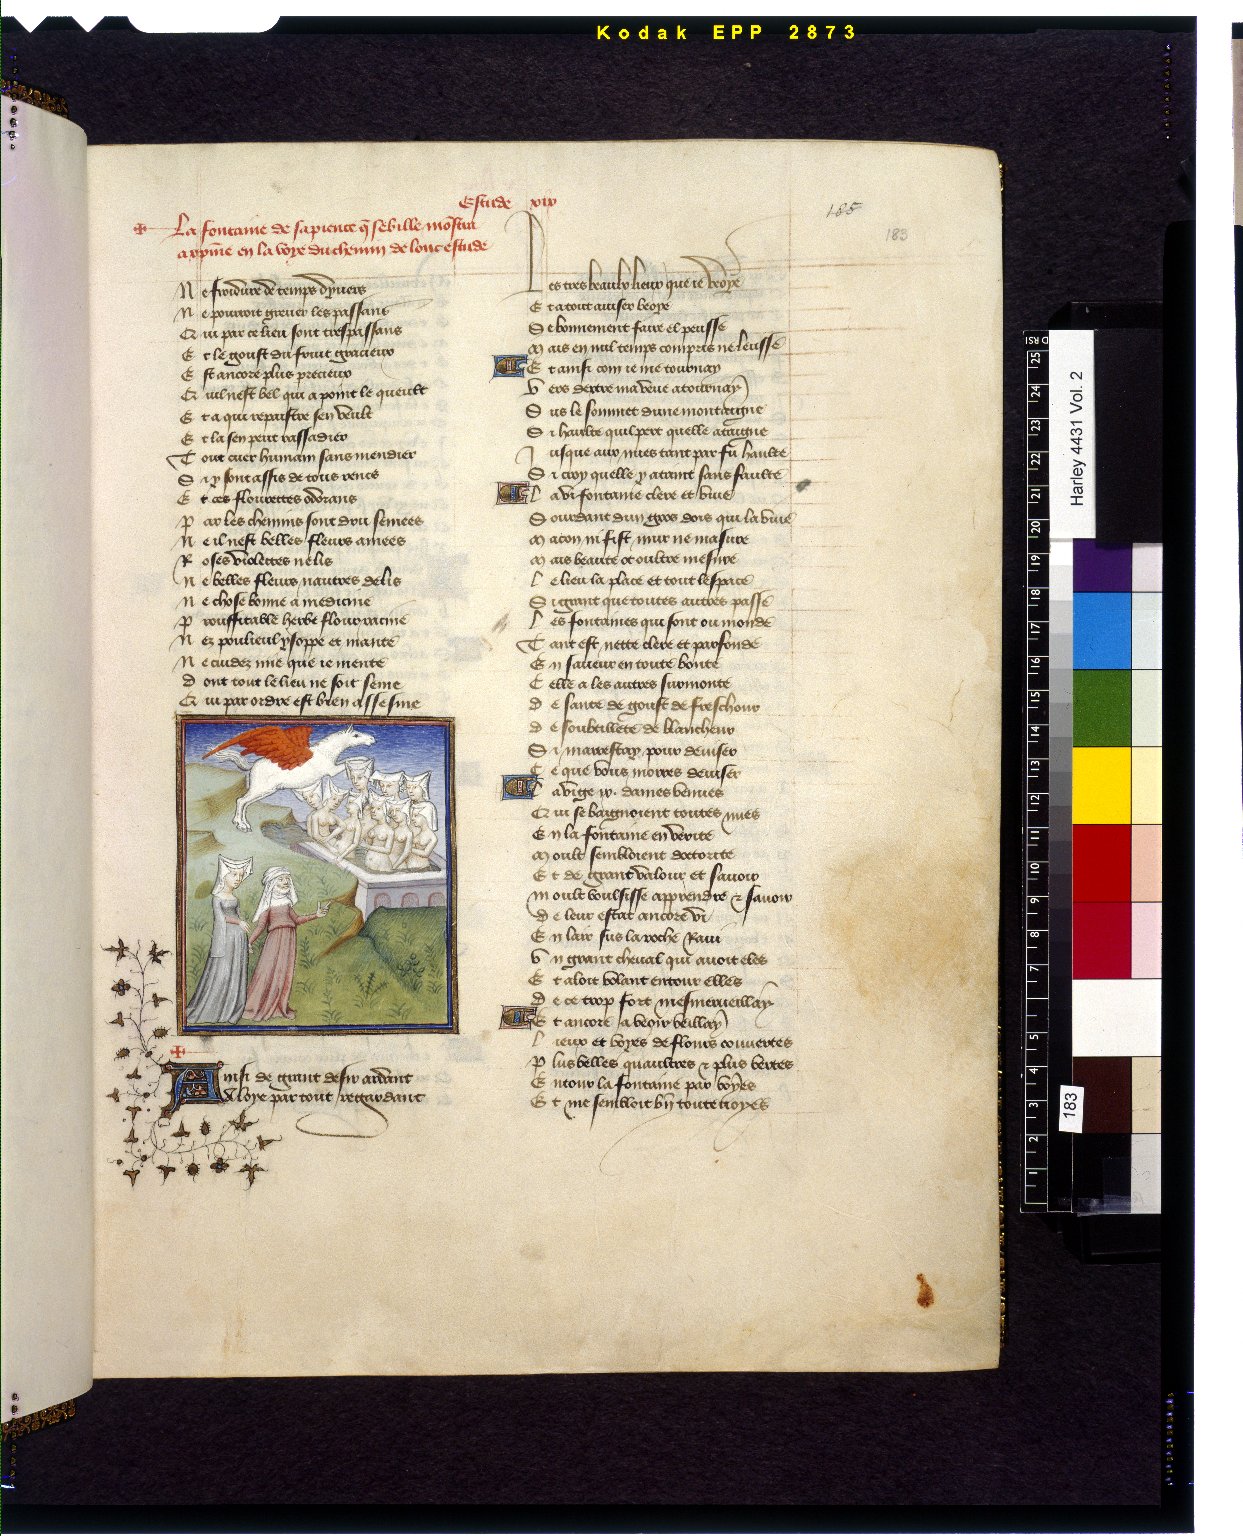 Kodak EPP 2873
Estude xiv
185
183
La fontaine de sapience q̄ sebille mōstra
a xp̄ine en la voye du chemin de lonc estude
Ne froidure de temps dyuers
Ne pourroit greuer les passans
Qui par ce lieu sont trespassans
Et le goust du fruit gracieux
Est ancore plus precieux
Quil nest bel qui a point le queult
Et a qui repaistre sen veult
Et la sen peut rassadier
Tout cuer humain sans mendier
Si y sont assis de tous rencs
Et ces flourettes odorans
Par les chemins sont dru semees
Ne il nest belles fleurs amees
Roses violettes ne lis
Ne belles fleurs nautres delis
Ne chose bonne a medicine
Prouffitable herbe flour racine
Nez poulieul ysoppe et mante
Ne cuidez mie que ie mente
Dont tout le lieu ne soit seme
Qui par ordre est bien assesme
Ainsi de grant desir ardant
Aloye par tout regardant
Les tres beaulx lieux que ie veoye
Et a tout auiser veoye
Se bonnement faire el peusse
Mais en nul temps compris ne leusse
Et ainsi com ie me tournay
Vers dextre ma veue atournay
Sus le sommet dune montaigne
Si haulte quil pert quelle ataigne
Jusque aux nues tant par fu haulte
Si croy quelle y ataint sans faulte
La vi fontaine clere et viue
Sourdant dun gros dois qui lauiue
Macon ni fist mur ne masure
Mais beaute ot oultre mesure
Le lieu la place et tout lespace
Si grant que toutes autres passe
Les fontaines qui sont ou monde
Tant est nette clere et parfonde
En saueur en toute bonte
Celle a les autres surmonte
De sante de goust de freschour
De soubtillete de blancheur
Si marrestay pour deuiser
Ce que vous morres deuiser
La vi ge .ix. dames venues
Qui se baignoient toutes nues
En la fontaine en verite
Moult sembloient dottorite
Et de grant valour et sauoir
Moult voulsisse apprendre & sauoir
De leur estat ancore vi
En lair sus la roche
Vn grant cheual qui auoit eles
Et aloit volant entour elles
De ce trop fort mesmerueillay
Et ancore a veoir veillay
Lieux et voyes de flours couuertes
Plus belles quaultres & plus vertes
Entour la fontaine par voyes
Et me sembloit bn̄
Harley 4431 Vol. 2
25
24
23
22
21
20
19
18
17
16
15
14
13
12
11
10
9
8
7
5
4
3
2
1
183